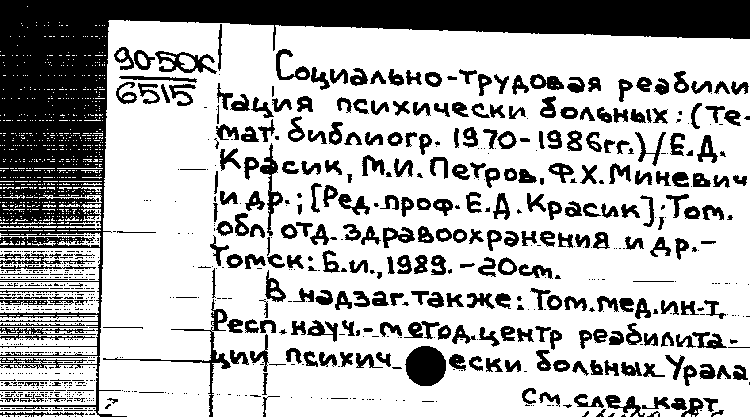 90-50К
6515
Социально-трудовая реабили
тация психически больных: (те-
мат. библиогр. 1970-1986гг.)/Е.Д.
Красик, М.И. Петров, Ф.Х. Миневич
и др.; [Ред. проф. Е.Д. Красик]; Том.
обл. отд. здравоохранения и др.-
Томск: Б.и., 1989. - 20см.
В надзаг. также: Том. мед. ин-т,
Респ. науч.-метод. центр реабилита-
ции психич ески больных Урала
См. след. карт.